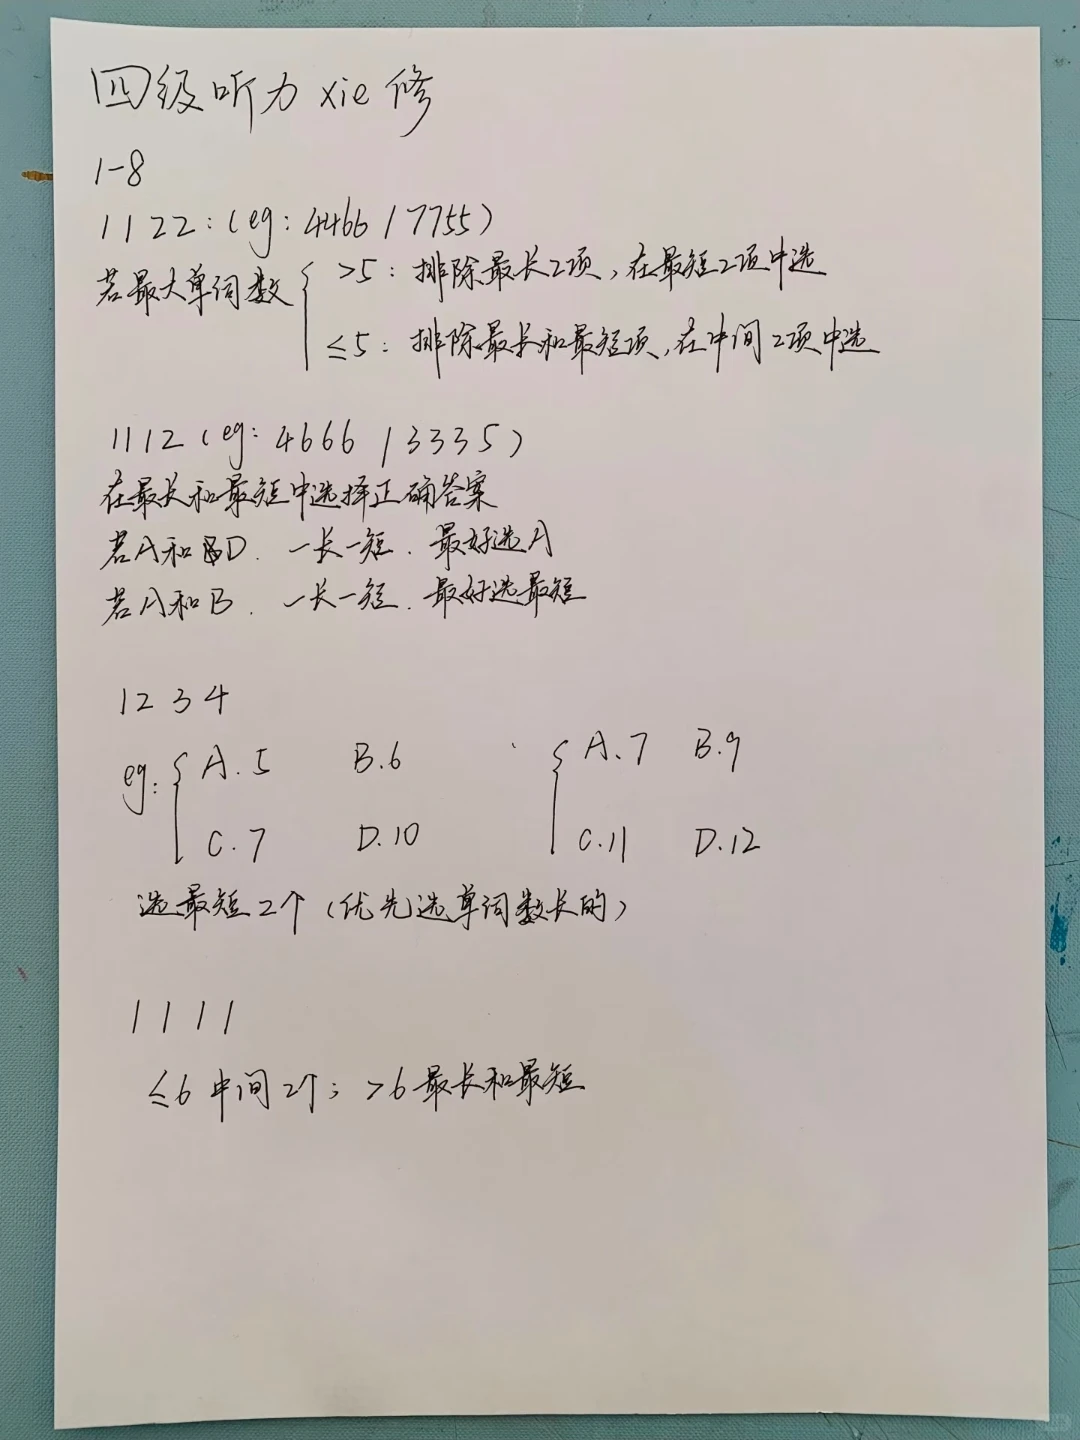 四级听力 xie 修
1-8
1122:(eg:4466/7755)
若最大单词数 >5:排除最长2项,在最短2项中选
≤5:排除最长和最短项,在中间2项中选
1112(eg:4666/3335)
在最长和最短中选择正确答案
若A和D.一长一短.最好选A
若A和B.一长一短.最好选最短
1234
eg: A.5 B.6 A.7 B.9
C.7 D.10 C.11 D.12
选最短2个(优先选单词数长的)
1111
≤6中间2个;>6最长和最短